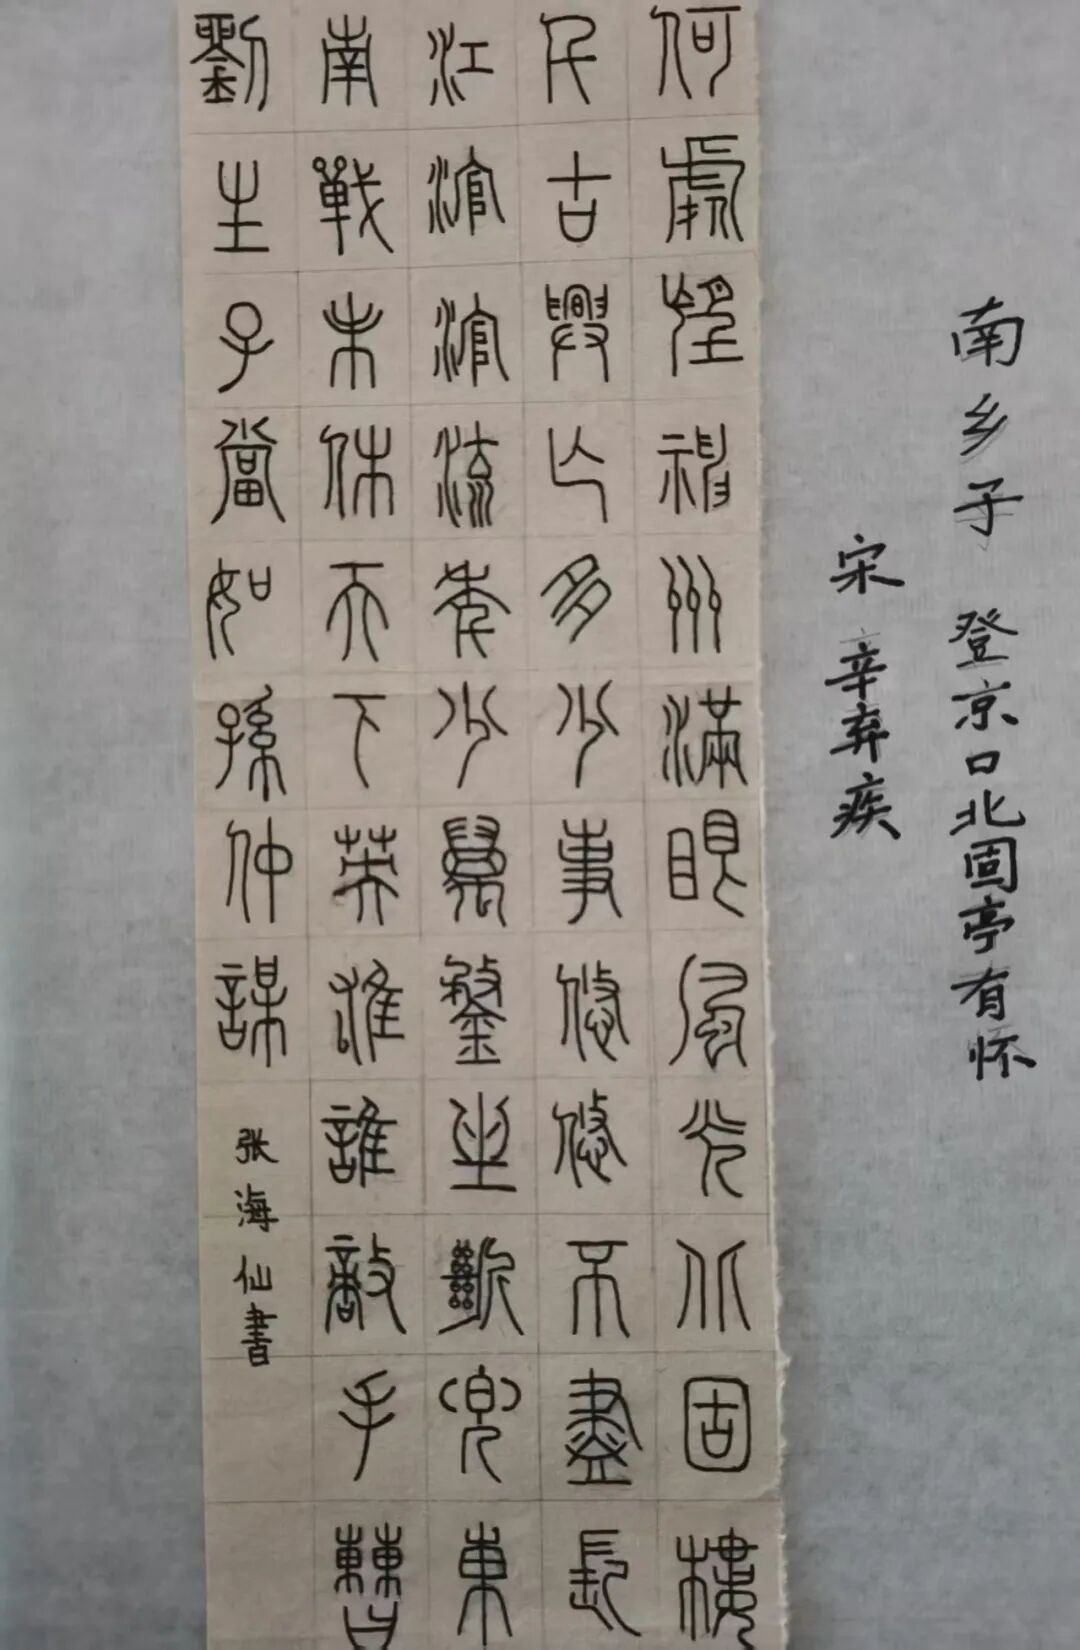 南乡子 登京口北固亭有怀
宋 辛弃疾
何處望神州滿眼風光北固樓
千古興亡多少事悠悠不盡長
江滾滾流年少萬鍪坐斷兜東
南戰未休天下英雄誰敵手曹
劉生子當如孫仲謀
张海仙書